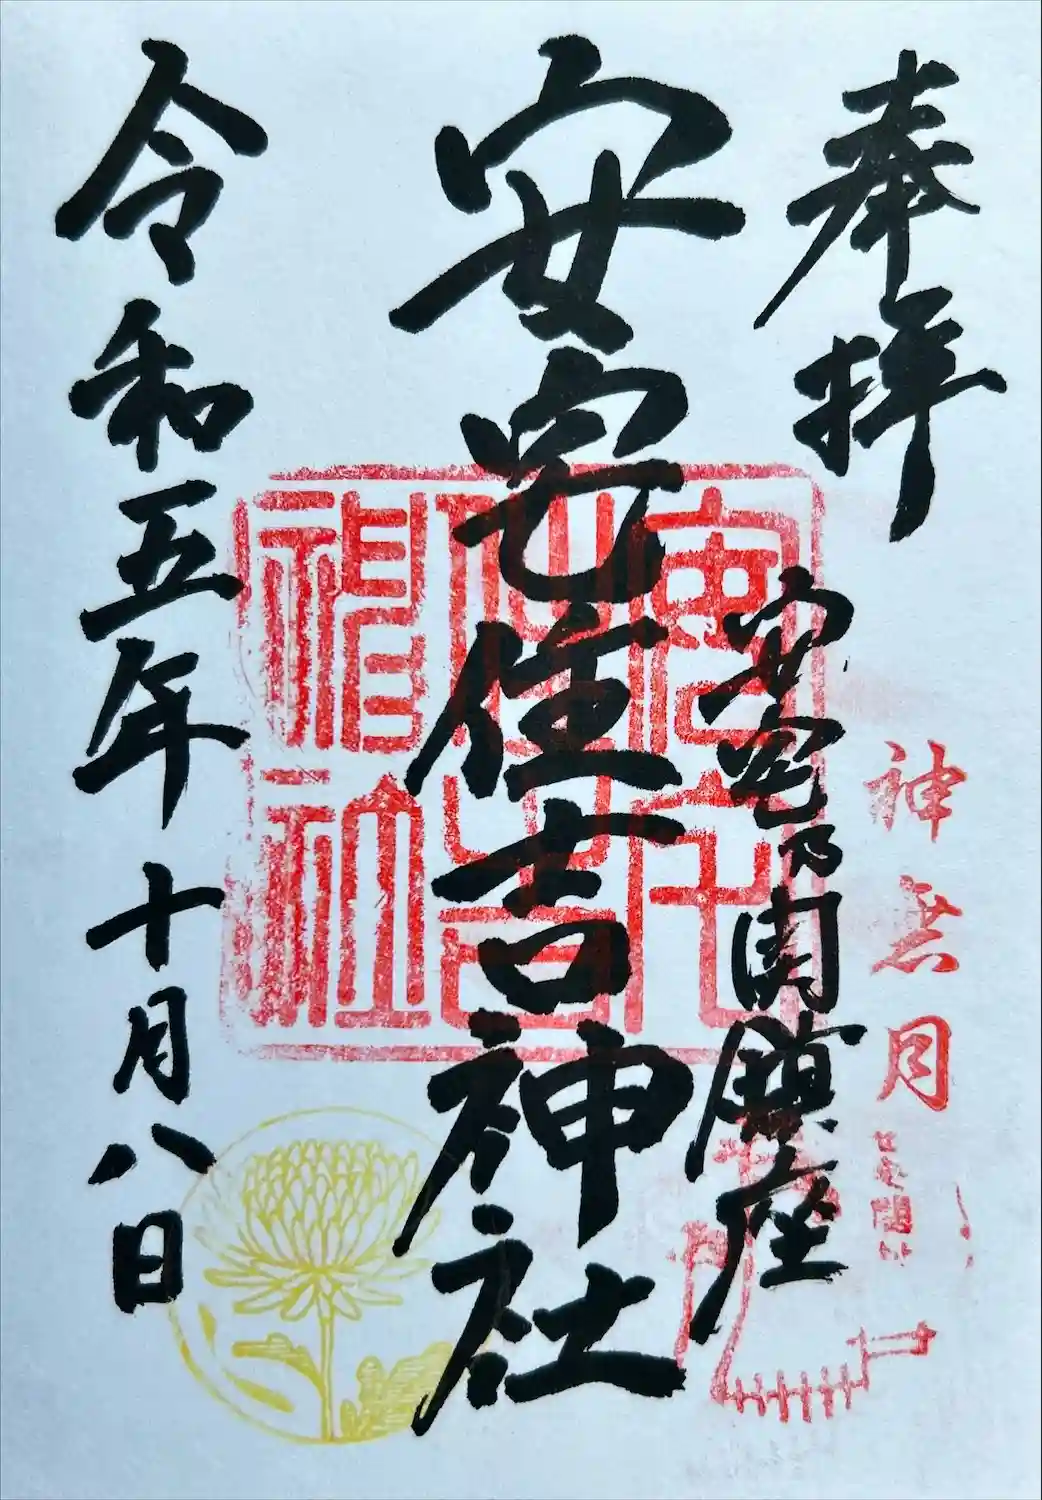 奉拝
神無月
安宅乃関鎮座
安宅住吉神社
令和五年十月八日
安宅
住吉
神社